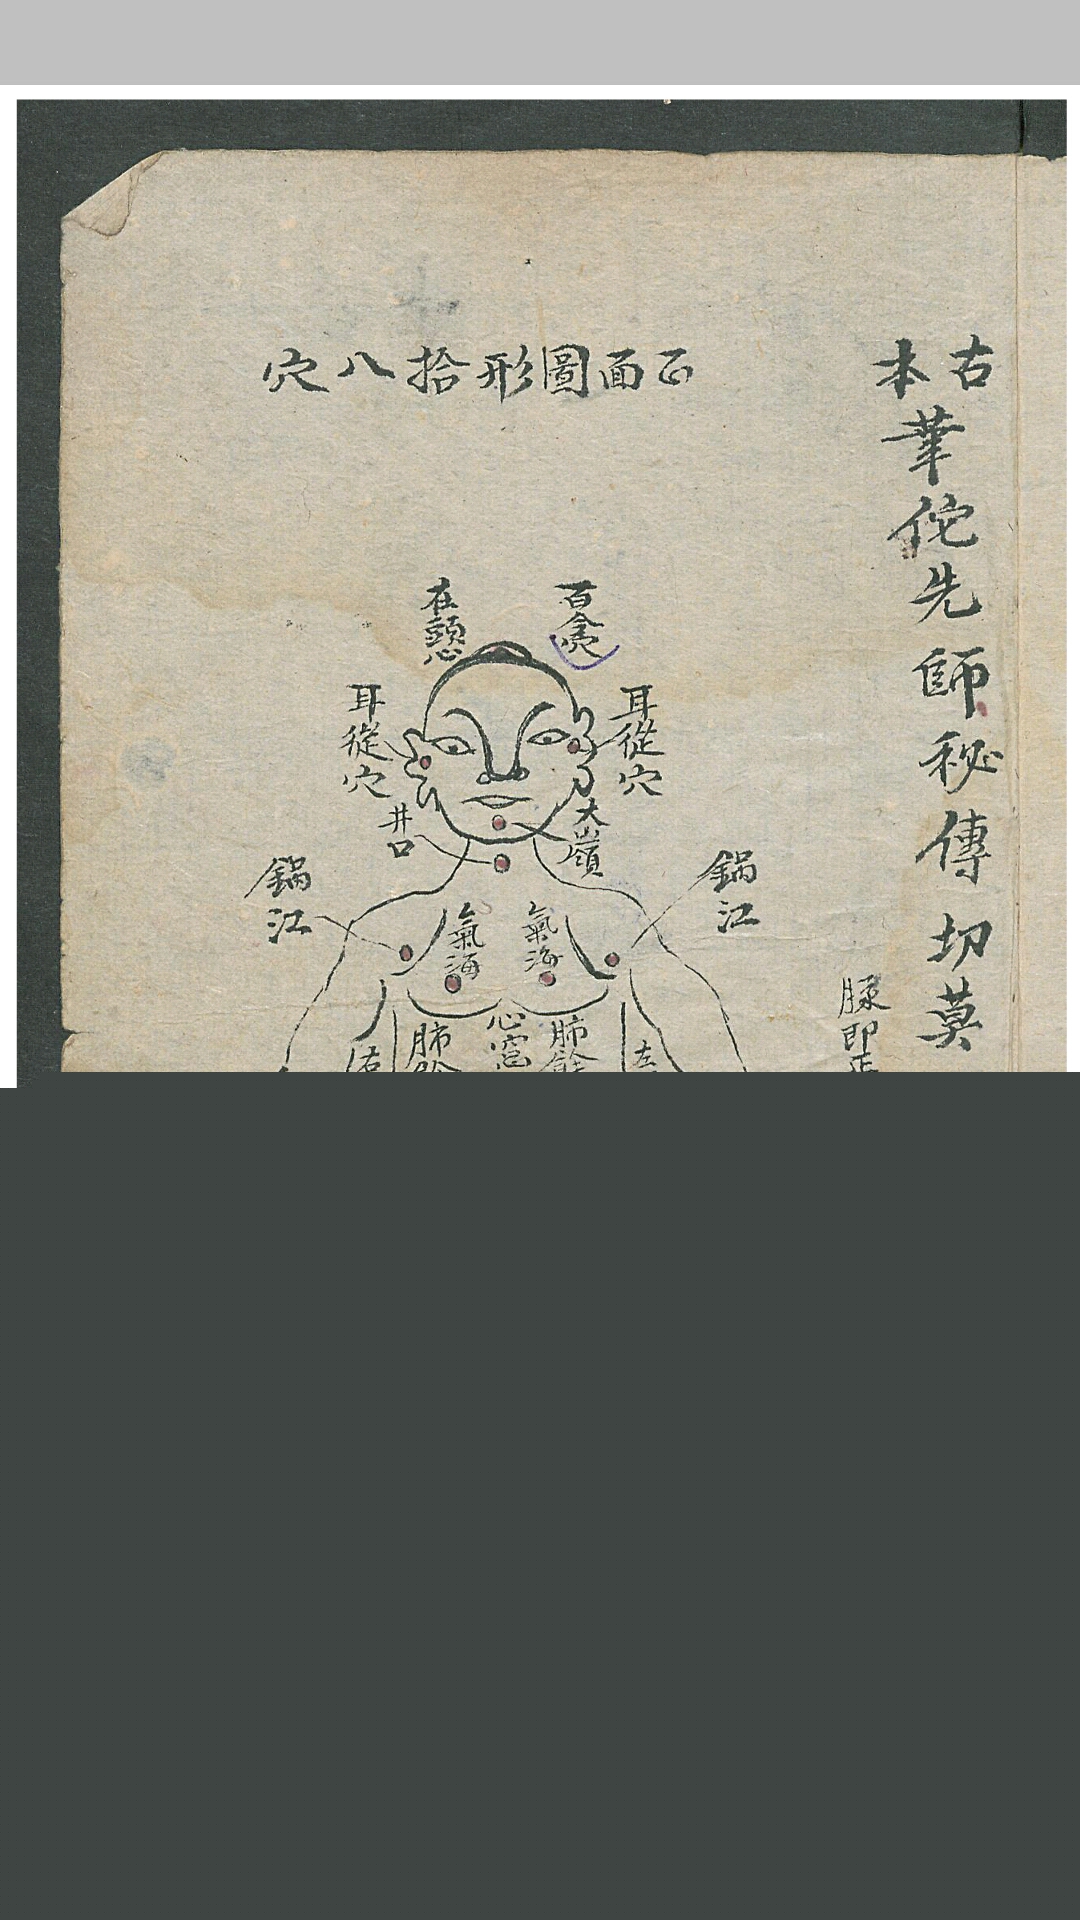 古本華佗先師秘傳切莫
正面圖形拾八穴
百會穴
在頭心
耳從穴
耳從穴
大嶺
井口
鍋江
鍋江
氣海
氣海
心窩
肺
肺
左
右
即